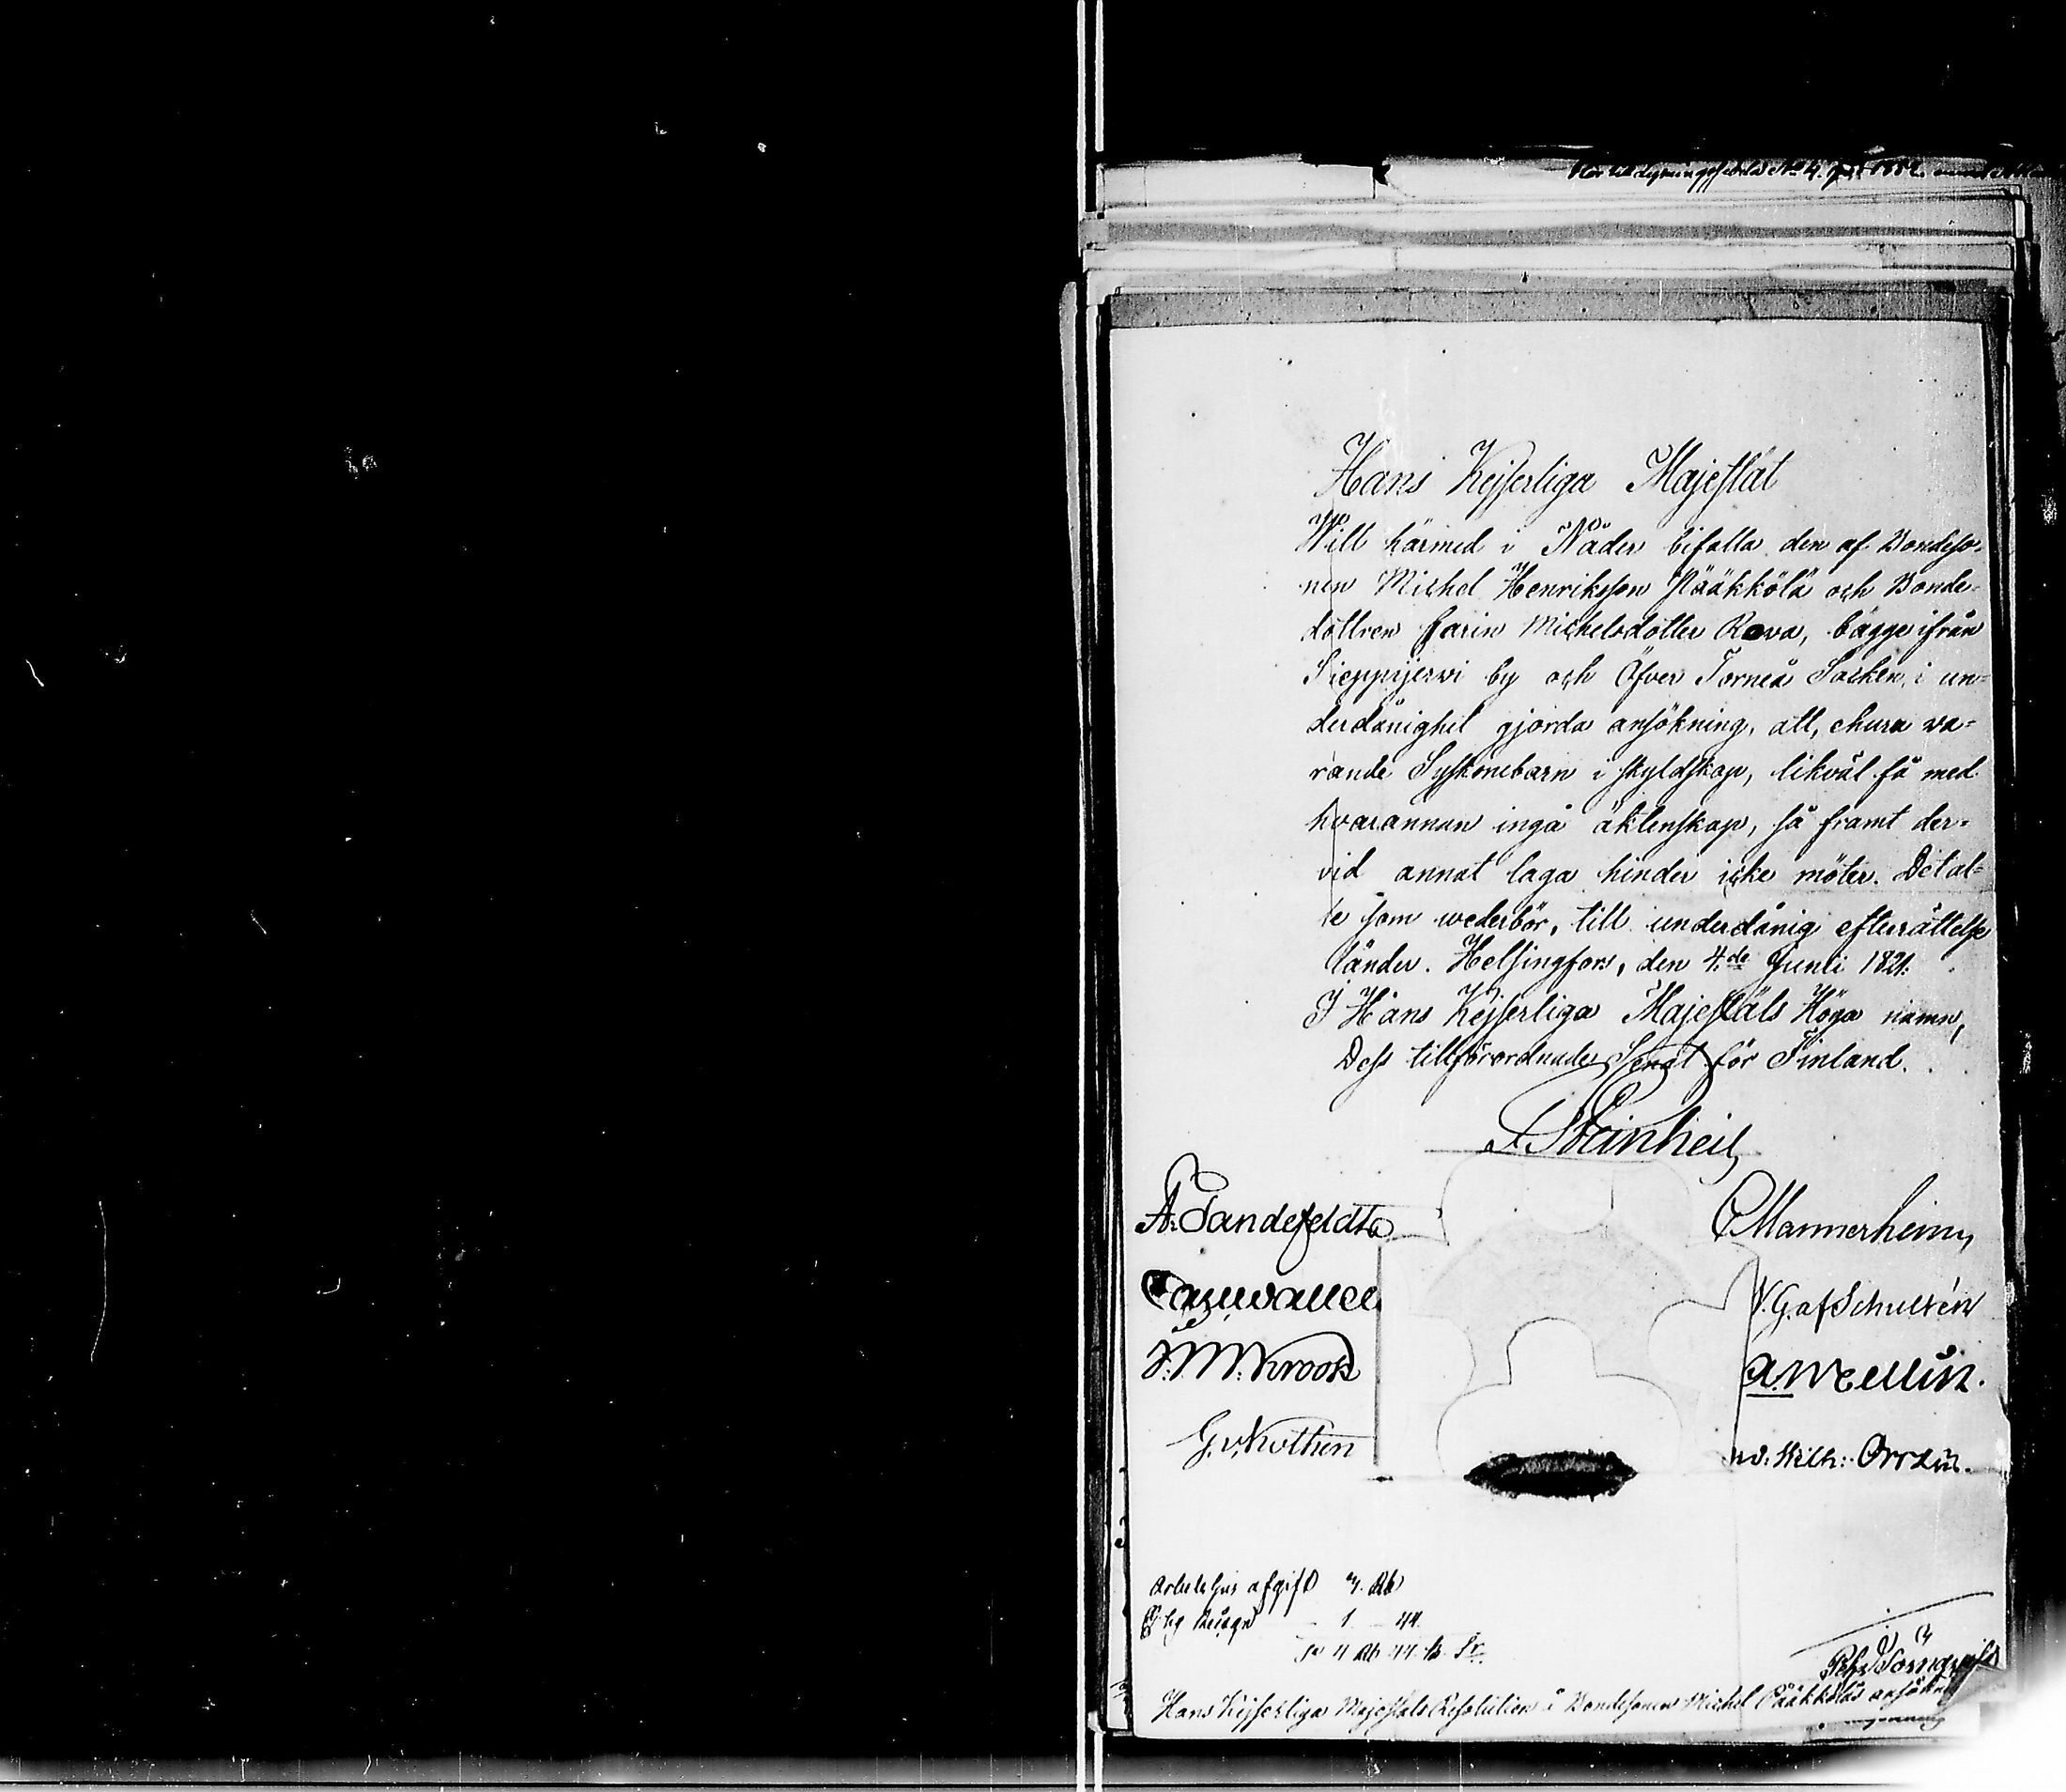 Hans Kejserliga Majestät
Will härmed i Nåder bifalla den af Bondeso-
nen Michel Henriksson Pääkkölä och Bonde-
dottren Carin Michelsdotter Rova, bägge ifrån
Sieppijerwi by och Öfver Torneå Socken, i un-
derdånighet gjorda ansökning, att, ehuru va-
rande Syskonebarn i skyldskap, likväl få med
hvarannan ingå äktenskap, så framt der-
vid annat laga hinder icke möter. Det al-
le som wederbör, till underdånig efterrättelse
länder. Helsingfors, den 4.de Junii 1821.
I Hans Kejserliga Majestäts Höga namn,
Dess tillförordnade Senat för Finland.
F. Steinheil
A: Tandefeldt
C Mannerheim
N. G. af Schultén
F: M: Krook
A. Wellin.
G. v. Kothen
Wilh: Orræus.
Arbetshus afgift 3. Rb
1 - 44
Sa 4 Rb 44 k. Sr.
Pehr Törnqvist
Hans Kejserliga Majestäts Resolution å Bondesonen Michel Pääkkölä ansökning